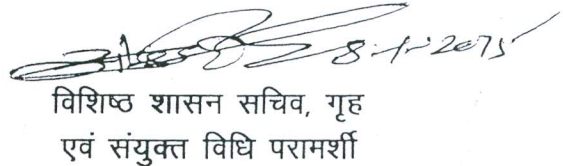 8-1-2015
विशिष्ठ शासन सचिव, गृह
एवं संयुक्त विधि परामर्शी